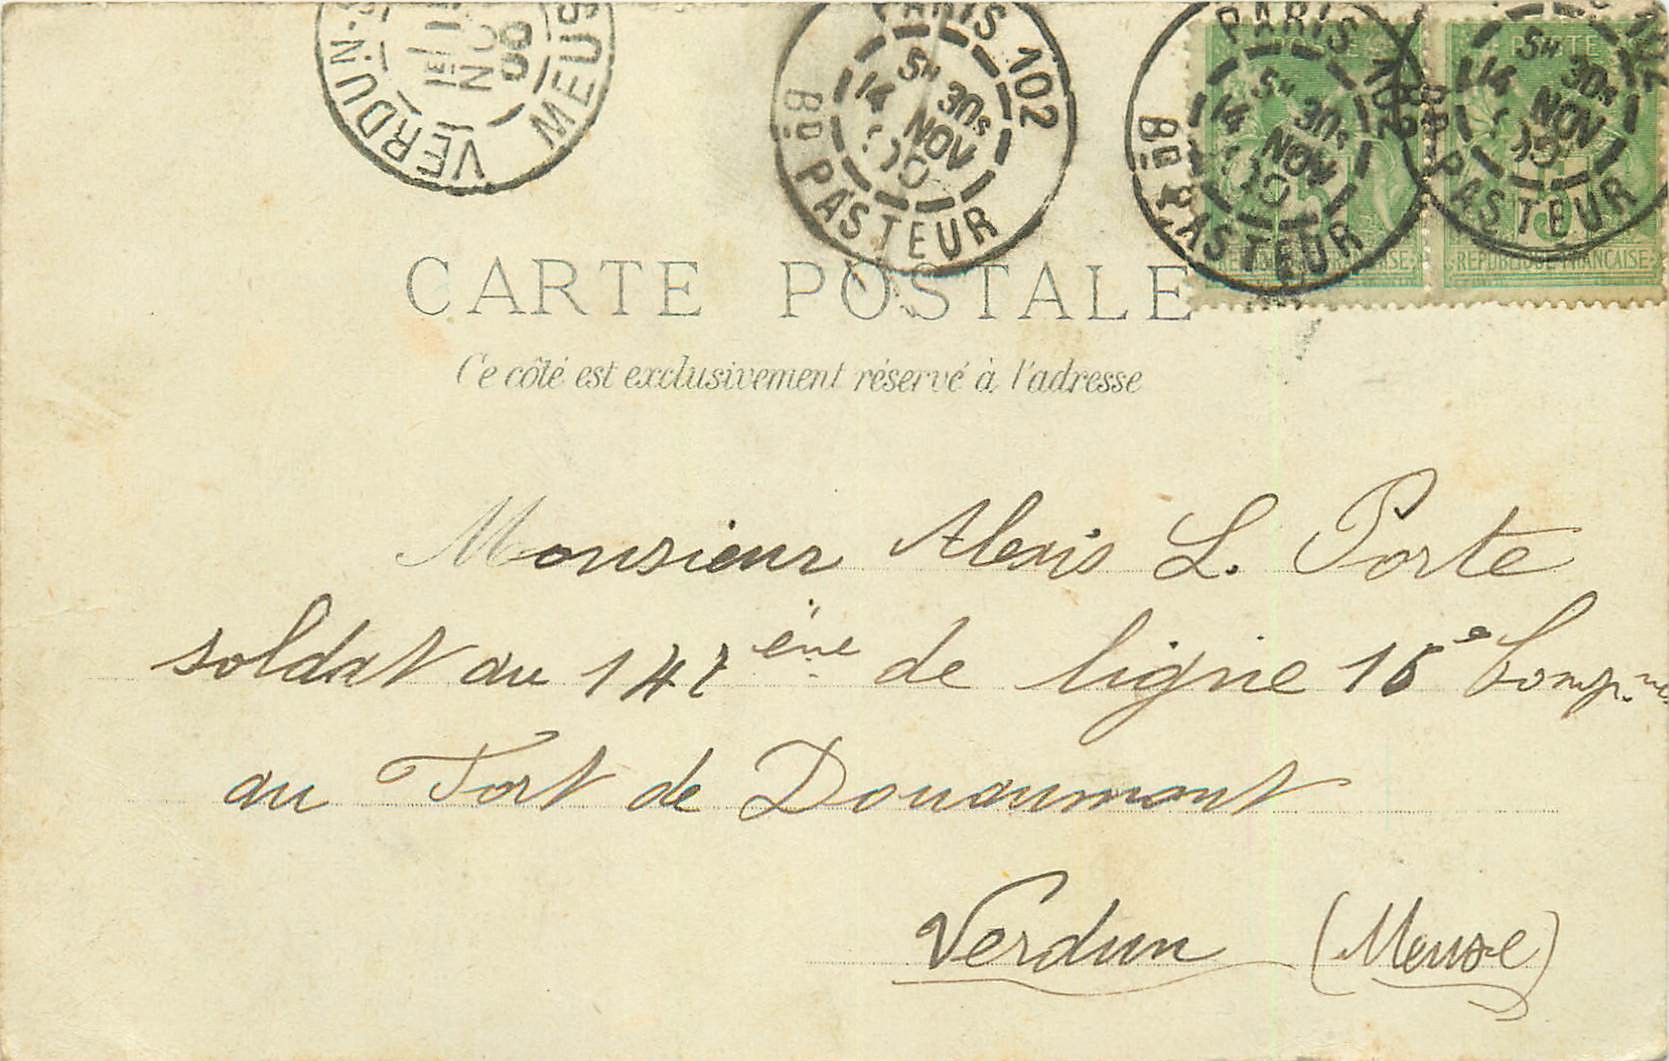 VERDUN-S MEUS
1E 15 NO 00
PARIS 102
5H 30S
14 NOV
00
BD PASTEUR
PARIS 102
5H 30S
14 NOV
00
BD PASTEUR
102
5H 30S
14 NOV
00
BD PASTEUR
POSTE
REPUBLIQUE FRANCAISE
CARTE POSTALE
Ce côté est exclusivement réservé à l'adresse
Monsieur Alexis L. Porte
soldat au 147ème de ligne 16e Comp.nie
au Fort de Douaumont
Verdun (Meuse)